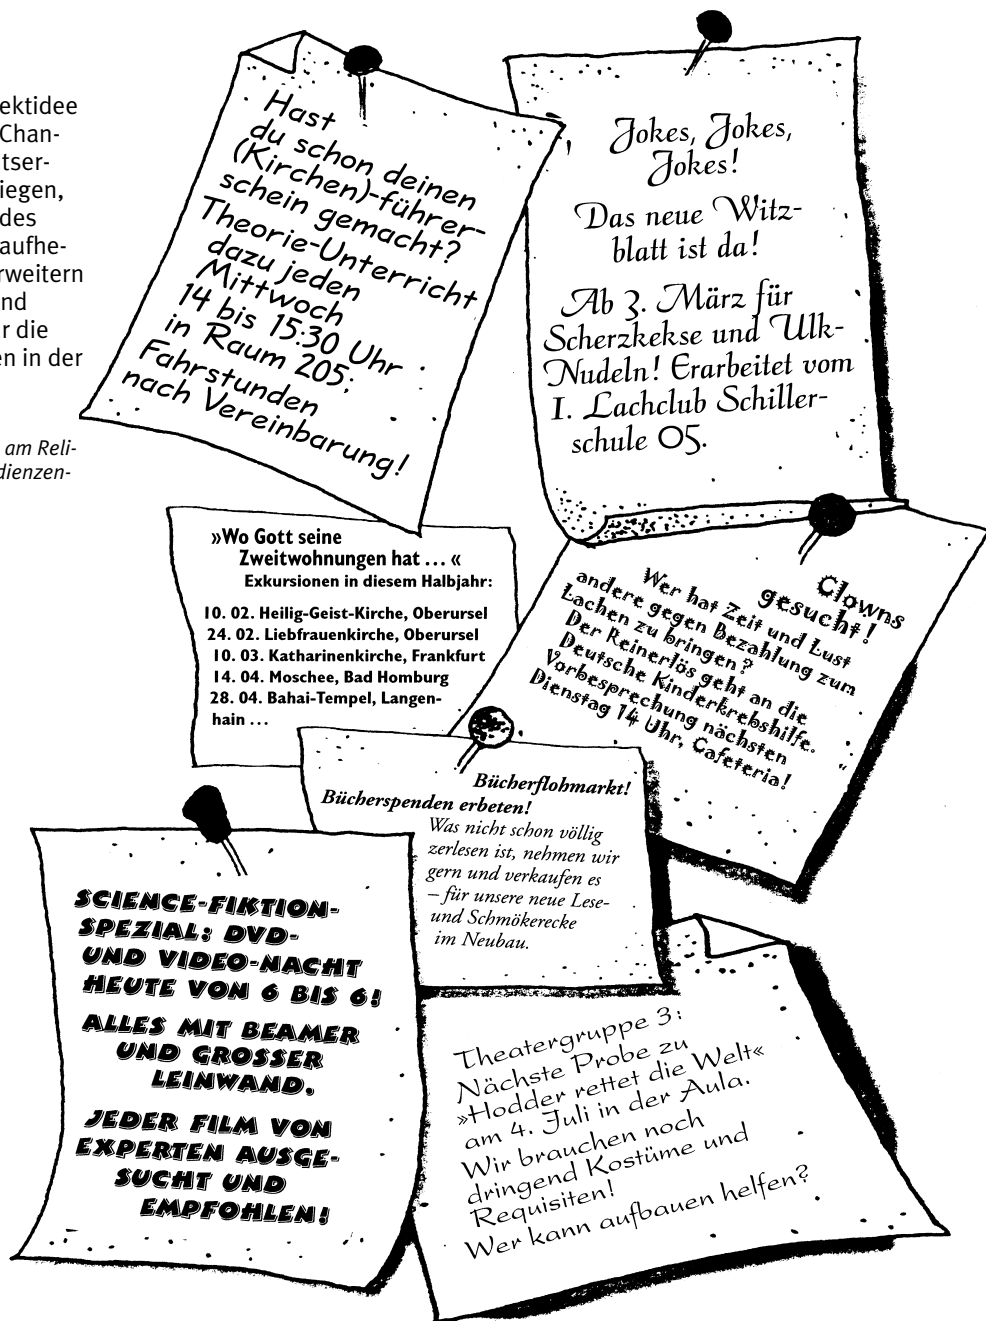 ektidee
Chan-
tser-
iegen,
des
aufhe-
rweitern
nd
r die
en in der
am Reli-
dienzen-
Hast
du schon deinen
(Kirchen)-führer-
schein gemacht?
Theorie-Unterricht
dazu jeden
Mittwoch
14 bis 15:30 Uhr
in Raum 205;
Fahrstunden
nach Vereinbarung!
Jokes, Jokes,
Jokes!
Das neue Witz-
blatt ist da!
Ab 3. März für
Scherzkekse und Ulk-
Nudeln! Erarbeitet vom
I. Lachclub Schiller-
schule 05.
»Wo Gott seine
Zweitwohnungen hat ... «
Exkursionen in diesem Halbjahr:
10. 02. Heilig-Geist-Kirche, Oberursel
24. 02. Liebfrauenkirche, Oberursel
10. 03. Katharinenkirche, Frankfurt
14. 04. Moschee, Bad Homburg
28. 04. Bahai-Tempel, Langen-
hain ...
Clowns
gesucht!
Wer hat Zeit und Lust
andere gegen Bezahlung zum
Lachen zu bringen?
Der Reinerlös geht an die
Deutsche Kinderkrebshilfe.
Vorbesprechung nächsten
Dienstag 14 Uhr, Cafeteria!
Bücherflohmarkt!
Bücherspenden erbeten!
Was nicht schon völlig
zerlesen ist, nehmen wir
gern und verkaufen es
– für unsere neue Lese-
und Schmökerecke
im Neubau.
SCIENCE-FIKTION-
SPEZIAL: DVD-
UND VIDEO-NACHT
HEUTE VON 6 BIS 6!
ALLES MIT BEAMER
UND GROSSER
LEINWAND.
JEDER FILM VON
EXPERTEN AUSGE-
SUCHT UND
EMPFOHLEN!
Theatergruppe 3:
Nächste Probe zu
»Hodder rettet die Welt«
am 4. Juli in der Aula.
Wir brauchen noch
dringend Kostüme und
Requisiten!
Wer kann aufbauen helfen?